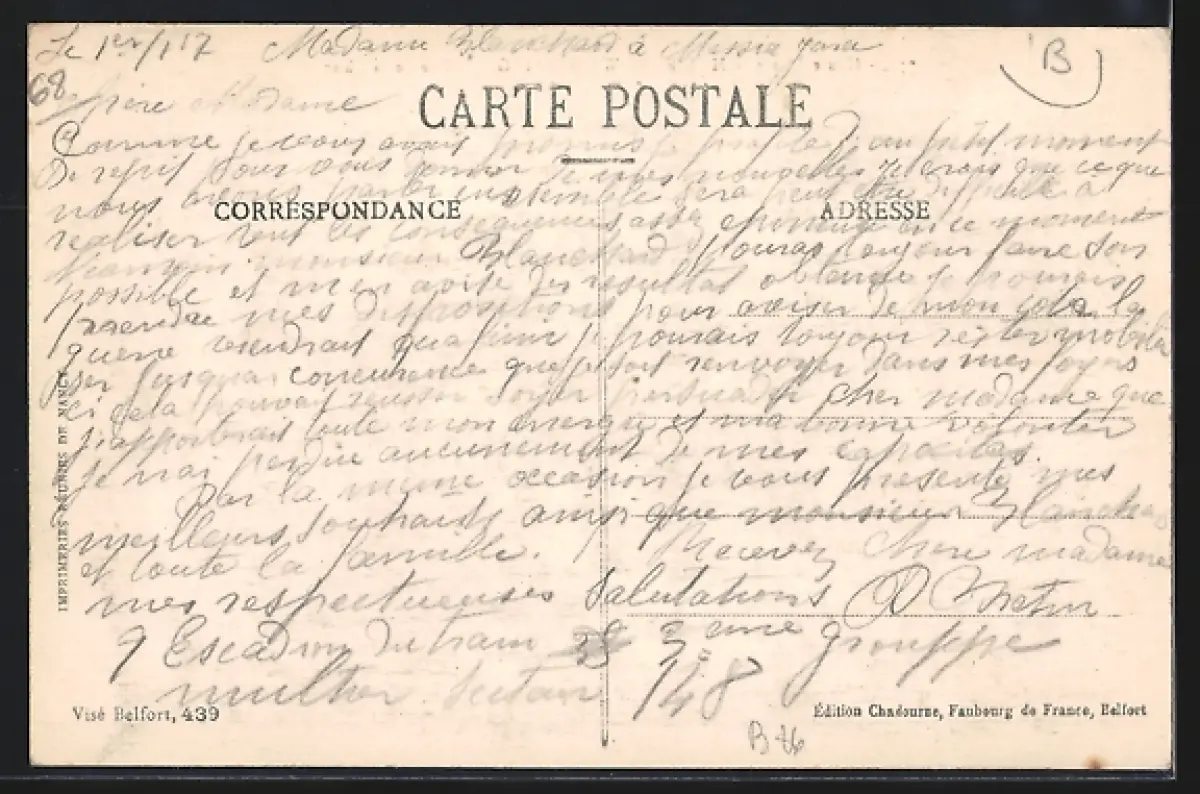 Le 1er/1 17 Madame Blanchard à Messia Jura
68
B
chère Madame
CARTE POSTALE
Comme je vous avais promis je profite d'un petit moment
De repit pour vous donner de mes nouvelles je crois que ce que
nous avons parler ensemble sera peut être difficile a
CORRESPONDANCE
ADRESSE
realiser vent les consequences assez en ce moment
monsieur Blanchard pouras toujour faire son
possible et m en avise du resultat obtenue je pourais
prendre mes dispositions pour aviser de mon cote la
guerre viendrait qua finir je pourais toujour
jusqua concurence que je soit renvoyer dans mes foyers
ci cela pouvait reussir soyer persuader cher madame que
j'apporterait toute mon energie et ma bonne volonter
je nai perdue aucunement de mes capacites
Par la meme occasion je vous presente mes
meilleurs souhaits ainsi que monsieur Blanchard
et toute la famille. Recevez chere madame
mes respectueuses Salutations
9 Escadron du train 3eme grouppe
secteur 148
IMPRIMERIES RÉUNIES DE NANCY
Visé Belfort, 439
Édition Chadourne, Faubourg de France, Belfort
B 86